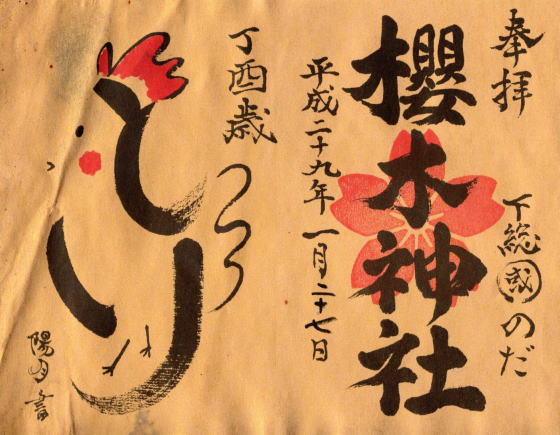 奉拝
下総國のだ
櫻木神社
平成二十九年一月二十七日
丁酉歳
とり
陽月書